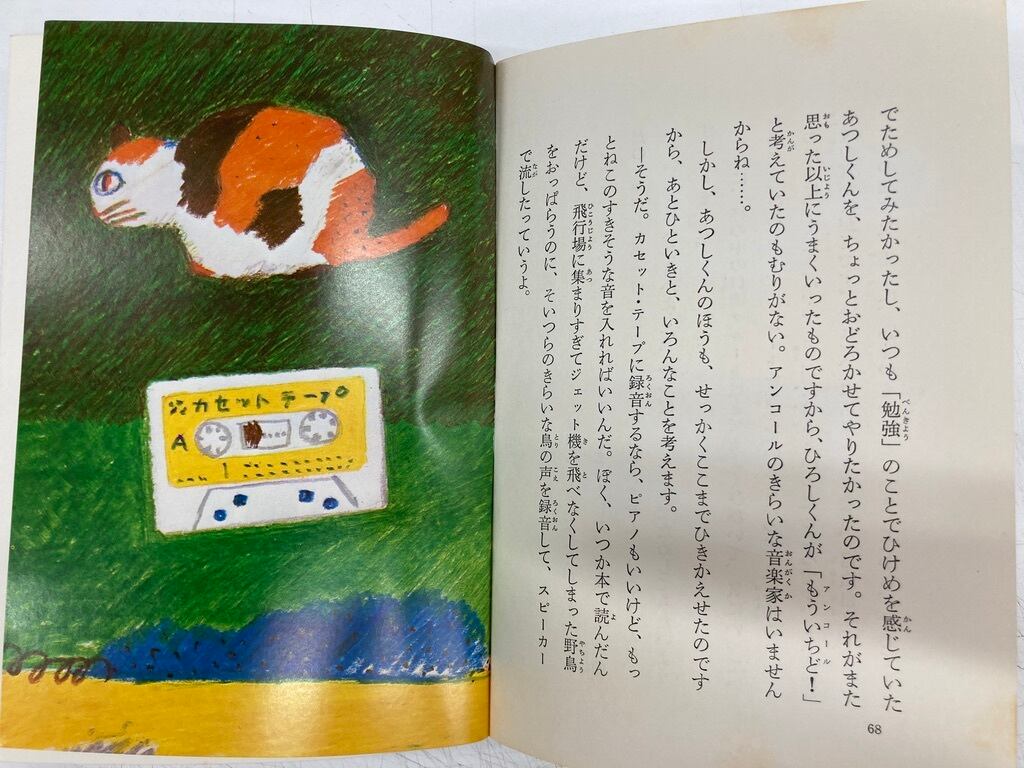 でためしてみたかったし、いつも「勉強」のことでひけめを感じていた
あつしくんを、ちょっとおどろかせてやりたかったのです。それがまた
思った以上にうまくいったものですから、ひろしくんが「もういちど！」
と考えていたのもむりがない。アンコールのきらいな音楽家はいません
からね……。
しかし、あつしくんのほうも、せっかくここまでひきかえせたのです
から、あとひといきと、いろんなことを考えます。
―そうだ。カセット・テープに録音するなら、ピアノもいいけど、もっ
とねこのすきそうな音を入れればいいんだ。ぼく、いつか本で読んだん
だけど、飛行場に集まりすぎてジェット機を飛べなくしてしまった野鳥
をおっぱらうのに、そいつらのきらいな鳥の声を録音して、スピーカー
で流したっていうよ。
68
カセットテープ
A